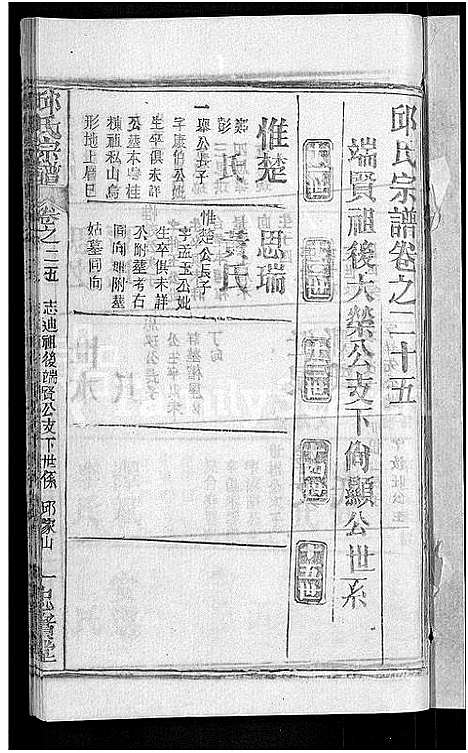 邱氏宗譜卷之二十五
端賢祖後大榮公支下尙顯公世系
惟楚
鄭彭氏
一舉公長子
字康伯公妣
生卒俱未詳
公墓本宅柱
積祖私山烏
形地上層巳
思瑞
黃氏
惟楚公長子
字孟玉公妣
生卒俱未詳
公附墓考右
同向妣附墓
姑墓同向
邱氏宗譜 卷之二五 志迪祖後端賢公支下世係 邱家山 一忠實堂